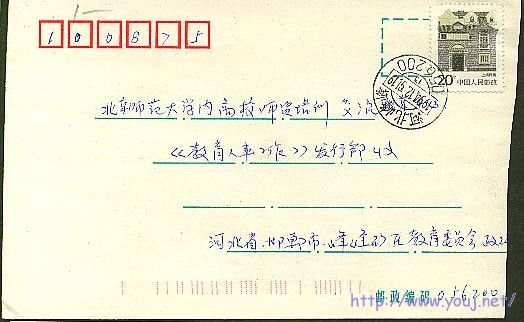 100875
20 中国人民邮政
北京师范大学内高校师资培训交流
《教育人事工作》发行部收
河北省邯郸市峰峰矿区教育委员会
邮政编码 056200
http://www.youj.net/